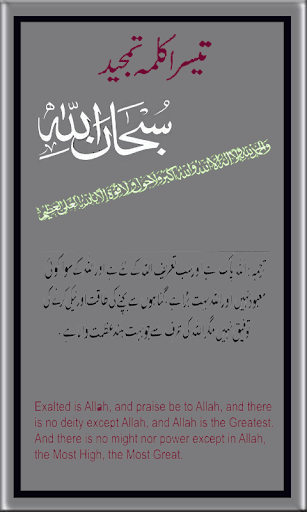 تیسرا کلمہ تمجید
سُبْحَانَ اللّٰهِ
وَالْحَمْدُ لِلّٰهِ وَلَا اِلٰهَ اِلَّا اللّٰهُ وَاللّٰهُ اَكْبَرُ وَلَا حَوْلَ وَلَا قُوَّةَ اِلَّا بِاللّٰهِ الْعَلِيِّ الْعَظِيْمِ
ترجمہ: اللہ پاک ہے اور سب تعریف اللہ کے لئے ہے اور اللہ کے سوا کوئی
معبود نہیں اور اللہ بہت بڑا ہے، گناہوں سے بچنے کی طاقت اور نیکی کرنے کی
توفیق نہیں مگر اللہ کی طرف سے جو بہت بلند عظمت والا ہے۔
Exalted is Allah, and praise be to Allah, and there
is no deity except Allah, and Allah is the Greatest.
And there is no might nor power except in Allah,
the Most High, the Most Great.